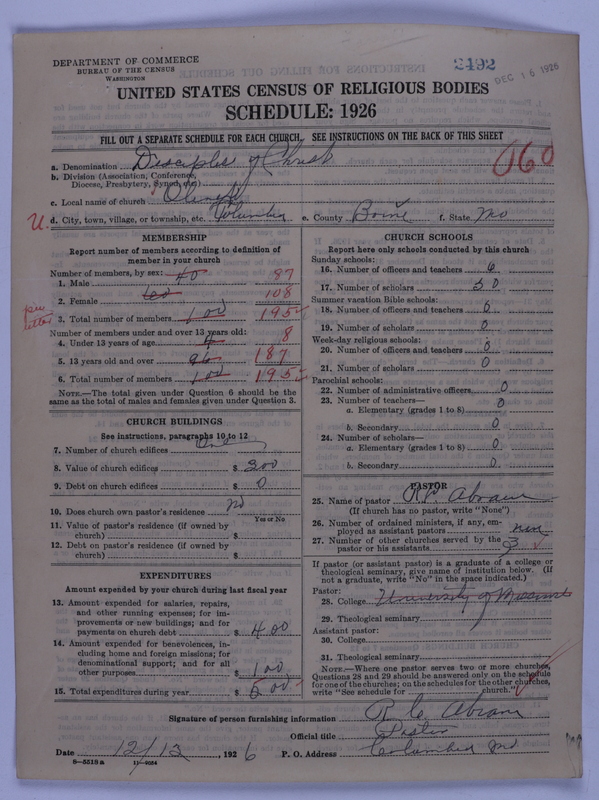 DEPARTMENT OF COMMERCE
BUREAU OF THE CENSUS
WASHINGTON
2492
DEC 16 1926
UNITED STATES CENSUS OF RELIGIOUS BODIES
SCHEDULE: 1926
FILL OUT A SEPARATE SCHEDULE FOR EACH CHURCH. SEE INSTRUCTIONS ON THE BACK OF THIS SHEET
a. Denomination Disciples of Christ
060
b. Division (Association, Conference, Diocese, Presbytery, Synod, etc.)
c. Local name of church
U d. City, town, village, or township, etc. Columbia e. County Boone f. State Mo
MEMBERSHIP
Report number of members according to definition of member in your church
Number of members, by sex:
1. Male 40 87
2. Female 60 108
per letter
3. Total number of members 100 195
Number of members under and over 13 years old:
4. Under 13 years of age 4 8
5. 13 years old and over 96 187
6. Total number of members 100 195
NOTE.—The total given under Question 6 should be same as the total of males and females given under Question 3.
CHURCH BUILDINGS
See instructions, paragraphs 10 to 12
7. Number of church edifices One
8. Value of church edifices $ 300
9. Debt on church edifices $ 0
10. Does church own pastor's residence No
Yes or No
11. Value of pastor's residence (if owned by church) $
12. Debt on pastor's residence (if owned by church) $
EXPENDITURES
Amount expended by your church during last fiscal year
13. Amount expended for salaries, repairs, and other running expenses; for improvements or new buildings; and for payments on church debt $ 400
14. Amount expended for benevolences, including home and foreign missions; for denominational support; and for all other purposes $ 100
15. Total expenditures during year $ 500
CHURCH SCHOOLS
Report here only schools conducted by this church
Sunday schools:
16. Number of officers and teachers 6
17. Number of scholars 50
Summer vacation Bible schools:
18. Number of officers and teachers 0
19. Number of scholars 0
Week-day religious schools:
20. Number of officers and teachers 0
21. Number of scholars 0
Parochial schools:
22. Number of administrative officers 0
23. Number of teachers—
a. Elementary (grades 1 to 8) 0
b. Secondary 0
24. Number of scholars—
a. Elementary (grades 1 to 8) 0
b. Secondary 0
PASTOR
25. Name of pastor R. C. Abram
(If church has no pastor, write "None")
26. Number of ordained ministers, if any, employed as assistant pastors
27. Number of other churches served by the pastor or his assistants 3
If pastor (or assistant pastor) is a graduate of a college or theological seminary, give name of institution below. (If not a graduate, write "No" in the space indicated.)
Pastor:
28. College University of Missouri
29. Theological seminary
Assistant pastor:
30. College
31. Theological seminary
NOTE.—Where one pastor serves two or more churches, Questions 28 and 29 should be answered only on the schedule for one of the churches; on the schedules for the other churches, write "See schedule for church."
Signature of person furnishing information R. C. Abram
Official title Pastor
Date 12/13, 1926 P. O. Address Columbia Mo
8—5518a 11—9034